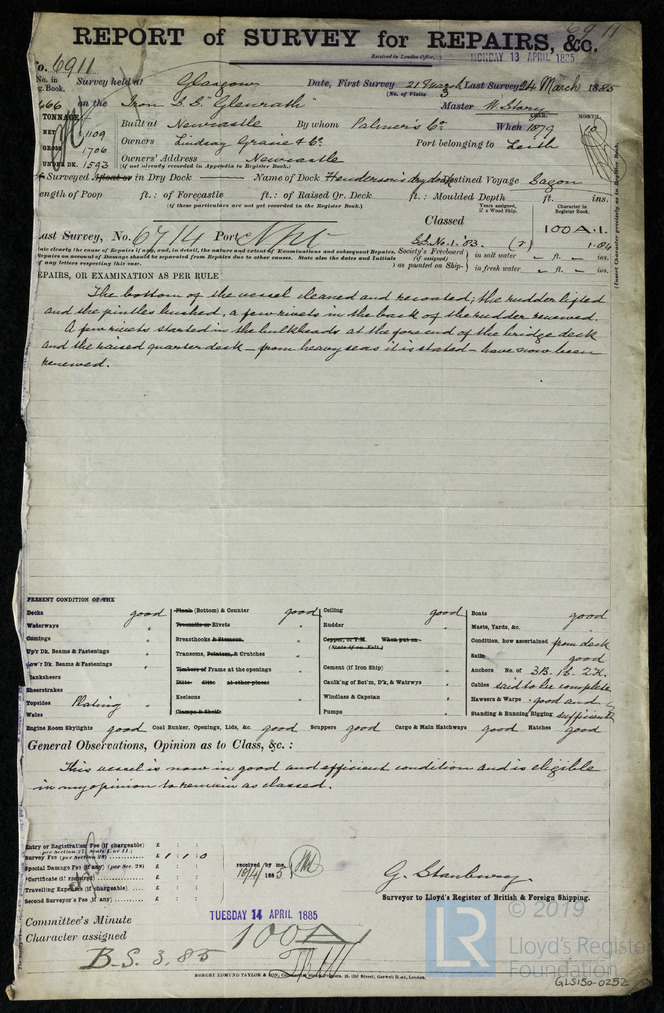 69 11
REPORT of SURVEY for REPAIRS, &c.
Received in London Office,
MONDAY 13 APRIL 1885
No. 6911
No. in Reg. Book. Survey held at Glasgow Date, First Survey 21 March Last Survey 24 March 1885
(No. of Visits 3
666 on the Iron S.S. "Glenrath" Master
TONNAGE
Built at Newcastle By whom Palmer's Co. When 1879 10
YEAR. MONTH.
NET 1109
GROSS 1706
UNDER DK. 1593
Owners Lindsay Gracie & Co. Port belonging to Leith
Owners' Address Newcastle
(if not already recorded in Appendix to Register Book.)
Surveyed Afloat or in Dry Dock Name of Dock Henderson's dry dock Destined Voyage
Length of Poop ft.: of Forecastle ft.: of Raised Qr. Deck ft.: Moulded Depth ft. ins.
(if these particulars are not yet recorded in the Register Book.)
Years assigned, if a Wood Ship.
Character in Register Book.
Classed
100A.1.
Last Survey, No. 6714 Port
S.S. No. 1.'83.
1.84
Society's Freeboard (if assigned) as painted on Ship
in salt water ft. ins.
in fresh water ft. ins.
(Insert Character precisely as in Register Book.
REPAIRS, OR EXAMINATION AS PER RULE
The bottom of the vessel cleaned and recoated; the rudder lifted
and the pintles bushed, a few rivets in the back of the rudder renewed.
A few rivets started in the bulkheads at the fore end of the bridge deck
and the raised quarter deck - from heavy seas it is stated - have now been
renewed.
PRESENT CONDITION OF THE
Decks good
Waterways "
Comings "
Up'r Dk. Beams & Fastenings "
Low'r Dk. Beams & Fastenings "
Planksheers
Sheerstrakes
Topsides Plating "
Wales
Plank (Bottom) & Counter good
Treenails or Rivets "
Breasthooks & Stemson "
Transoms, Pointers, & Crutches "
Timbers of Frame at the openings "
Ditto ditto at other places
Keelsons "
Clamps & Shelfs
Ceiling good
Rudder "
Copper, or Y.M. When put on
(State if on Felt.)
Cement (if Iron Ship) "
Caulk'ng of Bot'm, D'k, & Watrwys "
Windlass & Capstan "
Pumps "
Boats good
Masts, Yards, &c. "
Condition, how ascertained from deck
Sails good
Anchors No. of 3B. 1S. 2K.
Cables said to be complete
Hawsers & Warps good and
Standing & Running Rigging sufficient
Engine Room Skylights good Coal Bunker, Openings, Lids, &c. good Scuppers good Cargo & Main Hatchways good Hatches good
General Observations, Opinion as to Class, &c. :
This vessel is now in good and efficient condition and is eligible
in my opinion to remain as classed.
Entry or Registration Fee (if chargeable) £ : :
Survey Fee (per Section 28) £ 1 : 1 : 0
Special Damage Fee (if any) (per Sec. 28) £ : :
*Certificate (if required) £ : :
Travelling Expenses (if chargeable) £ : :
Second Surveyor's Fee (if any) £ : :
received by me,
10/4/1885
G. Stanbury
Surveyor to Lloyd's Register of British & Foreign Shipping.
Committee's Minute
TUESDAY 14 APRIL 1885
Character assigned 100A1
B.S. 3.85
© 2019
LR
Lloyd's Register
Foundation
GLS150-0252